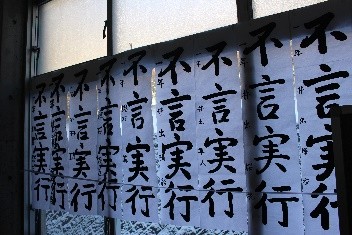 不言実行
不言実行
不言実行
不言実行
不言実行
不言実行
不言実行
不言実行
不言実行